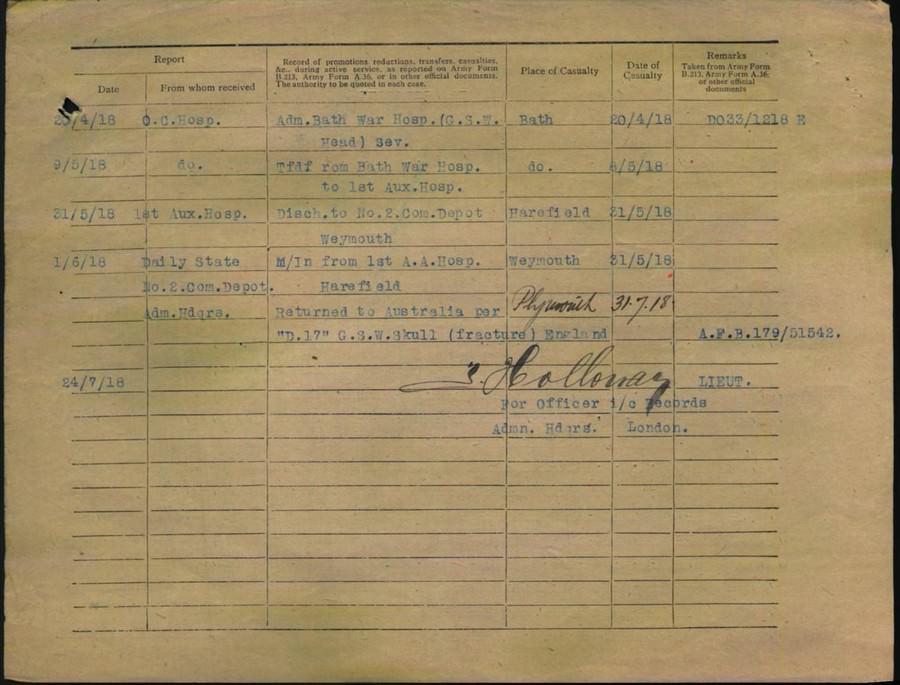 Report
Record of promotions, reductions, transfers, casualties,
&c., during active service, as reported on Army Form
B.213, Army Form A.36, or in other official documents.
The authority to be quoted in each case.
Place of Casualty
Date of
Casualty
Remarks
Taken from Army Form
B.213, Army Form A.36,
or other official
documents
Date
From whom received
/4/18 O.C.Hosp. Adm.Bath War Hosp.(G.S.W. Bath 20/4/18 DO33/1218 E
Head) Sev.
9/5/18 do. Tfdf rom Bath War Hosp. do. 8/5/18
to 1st Aux.Hosp.
31/5/18 1st Aux.Hosp. Disch.to No.2.Com.Depot Harefield 31/5/18
Weymouth
1/6/18 Daily State M/In from 1st A.A.Hosp. Weymouth 31/5/18
No.2.Com.Depot. Harefield
Adm.Hdqrs. Returned to Australia per Plymouth 31.7.18
"D.17" G.S.W.Skull (fracture) England A.F.B.179/51542.
24/7/18 Holloway LIEUT.
For Officer i/c Records
Admn. Hdqrs. London.